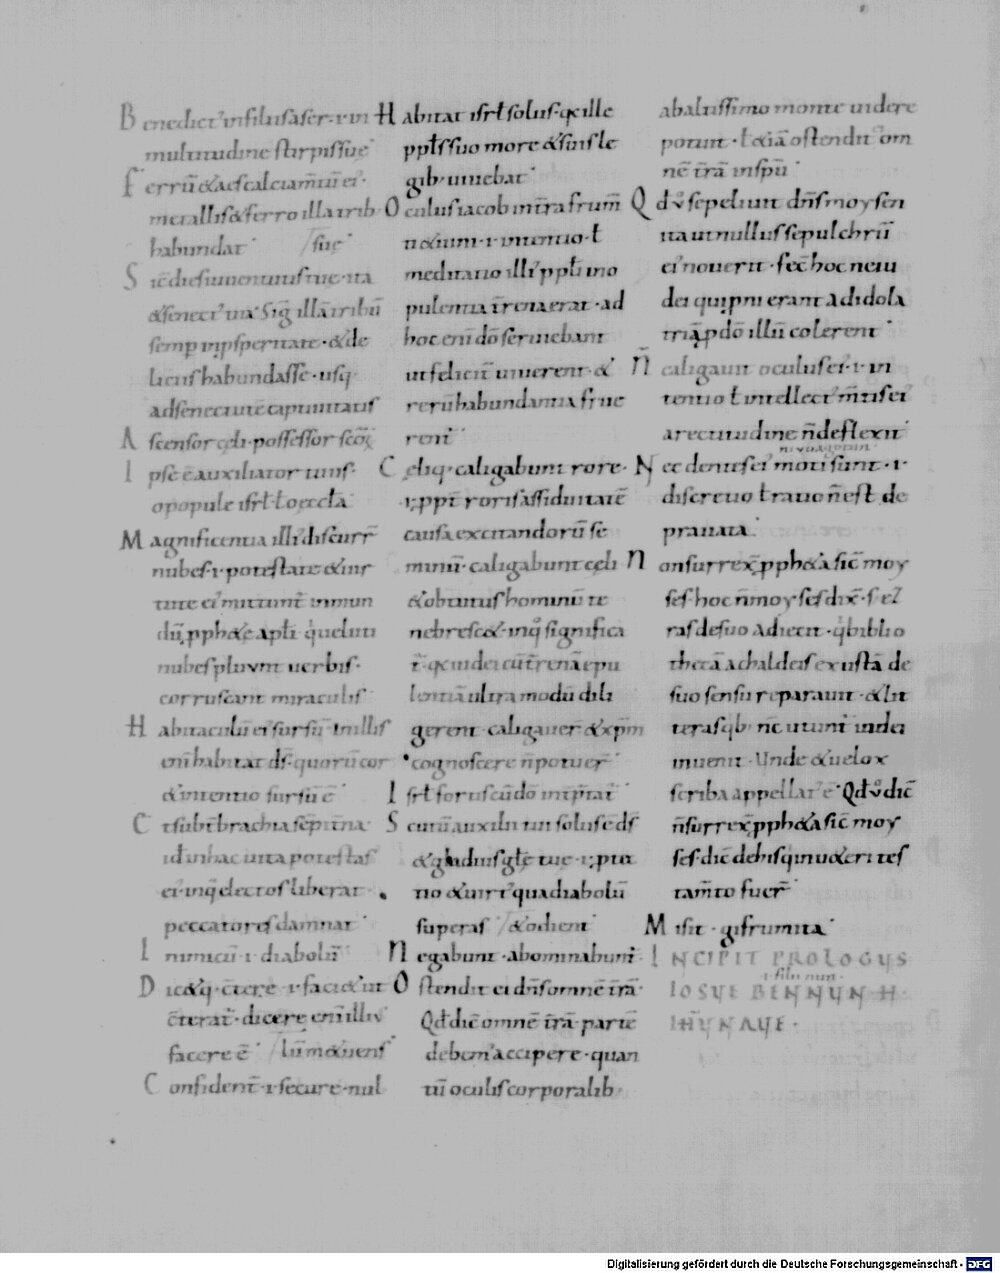 Benedict' in filiis aser · i · in
multitudine stirpis sue
Ferrū & aes calciam̄tū ei' ·
metallis & ferro illa trib
habundat · sue
Sic̄ dies iuuentutis tue · ita
& senect' tua · Siḡ illā tribū
semp in psperitate · & de
liciis habundasse · usq
ad senectutē captiuitatis
Ascensor cęli · possessor scōꝝ
Ipse ē auxiliator tuus ·
o popule isrł ł o ęccła
Magnificentia illi' discurr̄
nubes · i · potestate & uir
tute ei' mittunt̄ in mun
dū pph& & apłi qͥ uelut
nubes pluunt uerbis ·
corruscant miraculis
Habitaculū ei' sursū · in illis
eni habitat ds̄ · quorū cor
& intentio sursū ē
& subt̄ brachia sēpit̄na ·
id in hac uita potestas
ei' inq̄ electos liberat
peccatores damnat
Inimicū · i · diabolū
Dic&q · c̄tere · i · faci& ut
c̄terat̄ · dicere eni illi'
facere ē · lum̄ & uens
Confident̄ · i · secure · nul
Habitat isrł solus · q̄ ille
ppłs suo more & sine le
gib · uiuebat
Oculus iacob in t̄ra frum̄
ti & uini · i · intentio · ł
meditatio illi' ppłi in o
pulentia t̄rena erat · ad
hoc eni dō seruiebant
ut felicit̄ uiuerent · &
rerū habundantia frue
rent
Cęliq · caligabunt rore ·
i · ppt̄ roris assiduitatē
causa excitandorū se
minū · caligabunt cęli
& obtutus hominū te
nebresc& · inq̄ significa
t̄ · q̄ iudei cū t̄renā opu
lentiā ultra modū dili
gerent · caligauer̄ & xp̄m
cognoscere n̄ potuer̄
Isrł foris scdō int̄p̄tat̄
Scutū auxilii tui solus ē ds̄
& gladius głę tue · i · ptec
tio & uirt' qua diabolū
superas · & odient
Negabunt · abominabunt̄ ·
Ostendit ei dn̄s omnē t̄rā ·
Qd dic̄ omnē t̄rā · partē
debem' accipere · quan
tū oculis corporalib
ab altissimo monte uidere
potuit · ł & iā ostendit ei om
nē t̄rā in spū
Qd v̊ sepeliuit dn̄s moysen
ita ut nullus sepulchrū
ei' nouerit · fec̄ hoc ne iu
dei qui pni erant ad idola
triā p dō illū colerent
N̄ caligauit oculus ei' · i · in
tentio ł intellect' m̄tis ei'
a rectitudine n̄ deflexit
Nec dentes ei' moti sunt · i ·
discretio ł ratio n̄ est de
prauata
Non surrex̄ pph&a sic̄ moy
ses · hoc n̄ moyses dix̄ · s ez
ras de suo adiecit · qͥ biblio
thecā a chaldeis exustā de
suo sensu reparauit · & lit
teras qͥb nc̄ utunt̄ iudei
inuenit · Unde & uelox
scriba appellat' ē · Qd v̊ dic̄
n̄ surrex̄ pph&a sic̄ moy
ses · dic̄ de his qui in u&eri tes
tam̄to fuer̄
Misit · gisrumita
INCIPIT PROLOGUS
· i · filii nun ·
IOSUE BENNUN · H ·
IH̄U NAUE ·
Digitalisierung gefördert durch die Deutsche Forschungsgemeinschaft - DFG